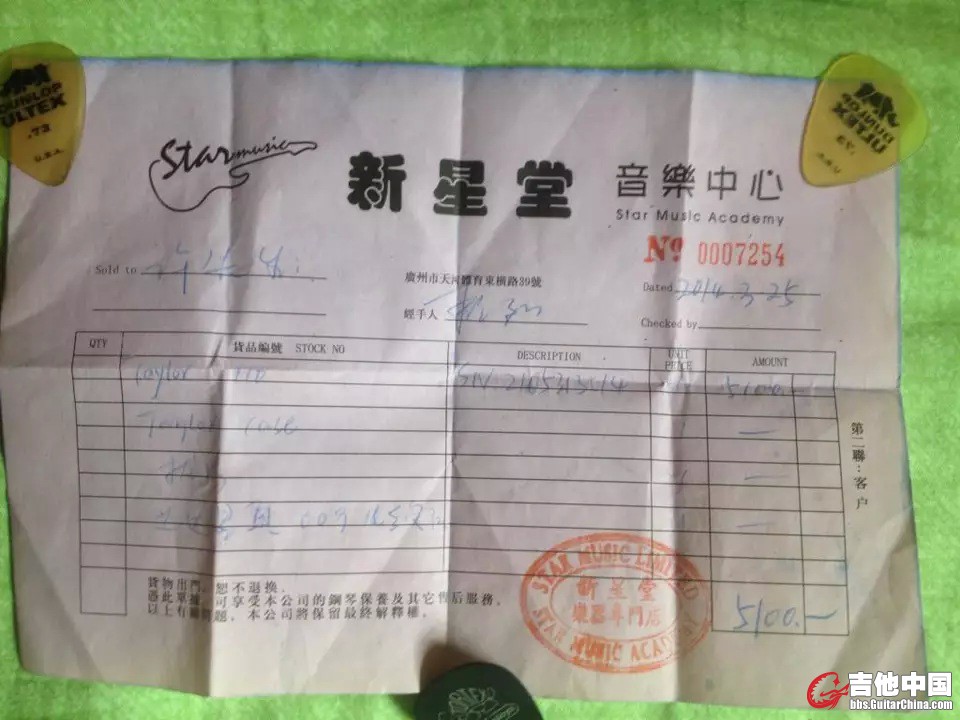 DUNLOP
ULTEX
.73
U.S.A.
DUNLOP
ULTEX
Star music
新星堂 音樂中心
Star Music Academy
№ 0007254
Sold to
廣州市天河體育東橫路39號
Dated 2014.3.25
經手人
Checked by
QTY 貨品編號 STOCK NO DESCRIPTION UNIT PRICE AMOUNT
Taylor 110 5100.—
Taylor case —
—
—
第二聯：客户
貨物出門，恕不退換。
憑此單據可享受本公司的鋼琴保養及其它售后服務。
以上有關問題，本公司將保留最終解釋權。
5100.—
STAR MUSIC LIMITED
新星堂
樂器專門店
STAR MUSIC ACADEMY
吉他中国
bbs.GuitarChina.com